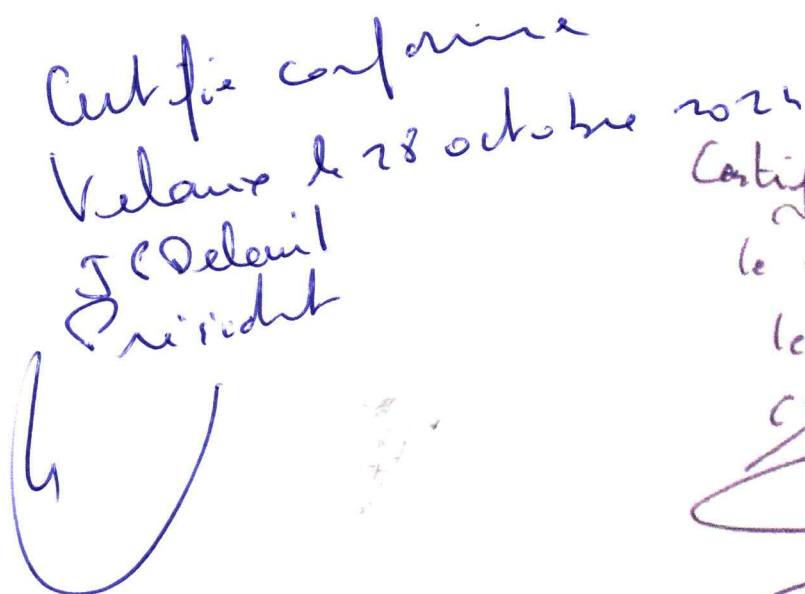 Certifie conforme
Velaux le 28 octobre 2024
JC Delauil
Président
le
le